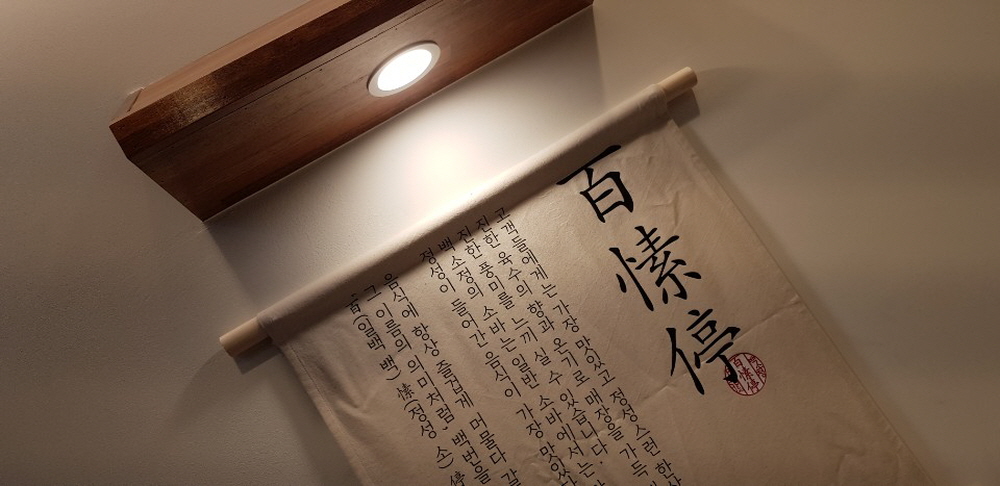 百愫停
고객들에게는 가장 맛있고 정성스런 한상
진한 육수의 향과 온기로 매장을 가득
진한 풍미를 느끼실 수 있습니다.
백소정의 소바는 일반 소바에서는
정성이 들어간 음식이 가장 맛있다
음식에 항상 즐겁게 머물다 갈
그 이름의 의미처럼, 백번을
百(일백 백) 愫(정성 소) 停
百愫停